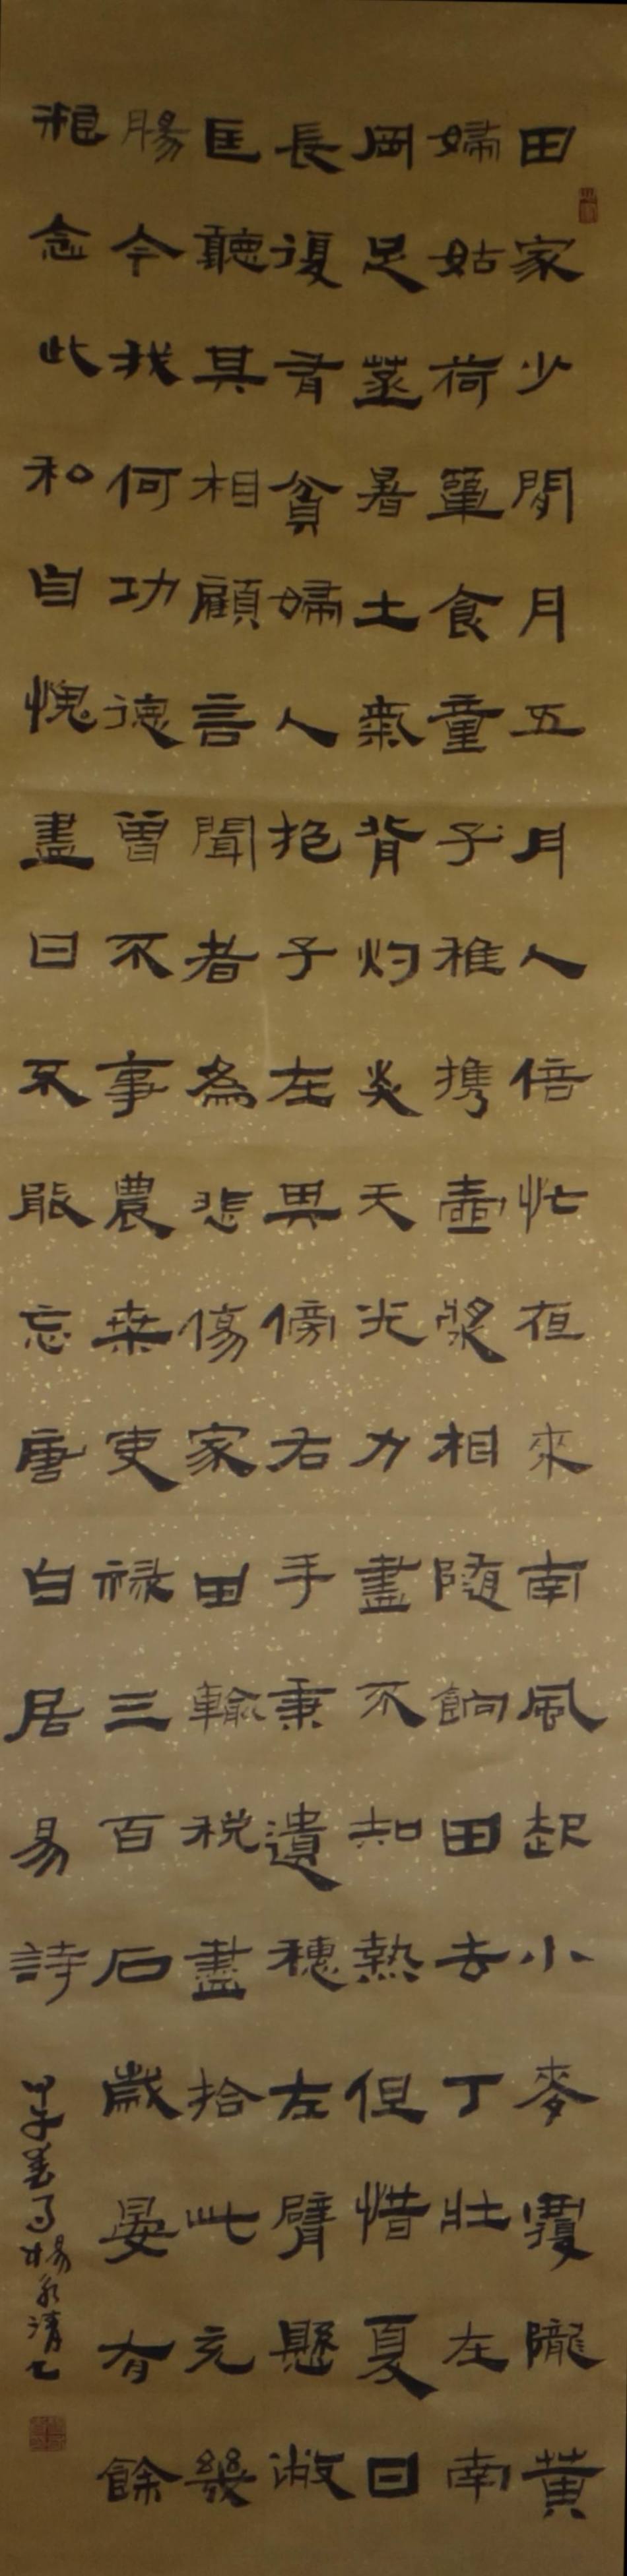 田家少閒月五月人倍忙夜來南風起小麥覆隴黃
婦姑荷簞食童子稚携壺漿相隨餉田去丁壯在南
岡足蒸暑土氣背灼炎天光力盡不知熱但惜夏日
長復有貧婦人抱子在其傍右手秉遺穗左臂懸敝
匡聽其相顧言聞者為悲傷家田輸稅盡拾此充饑
腸今我何功德曾不事農桑吏祿三百石歲晏有餘
粮念此私自愧盡日不能忘唐白居易詩
甲子春月楊永清